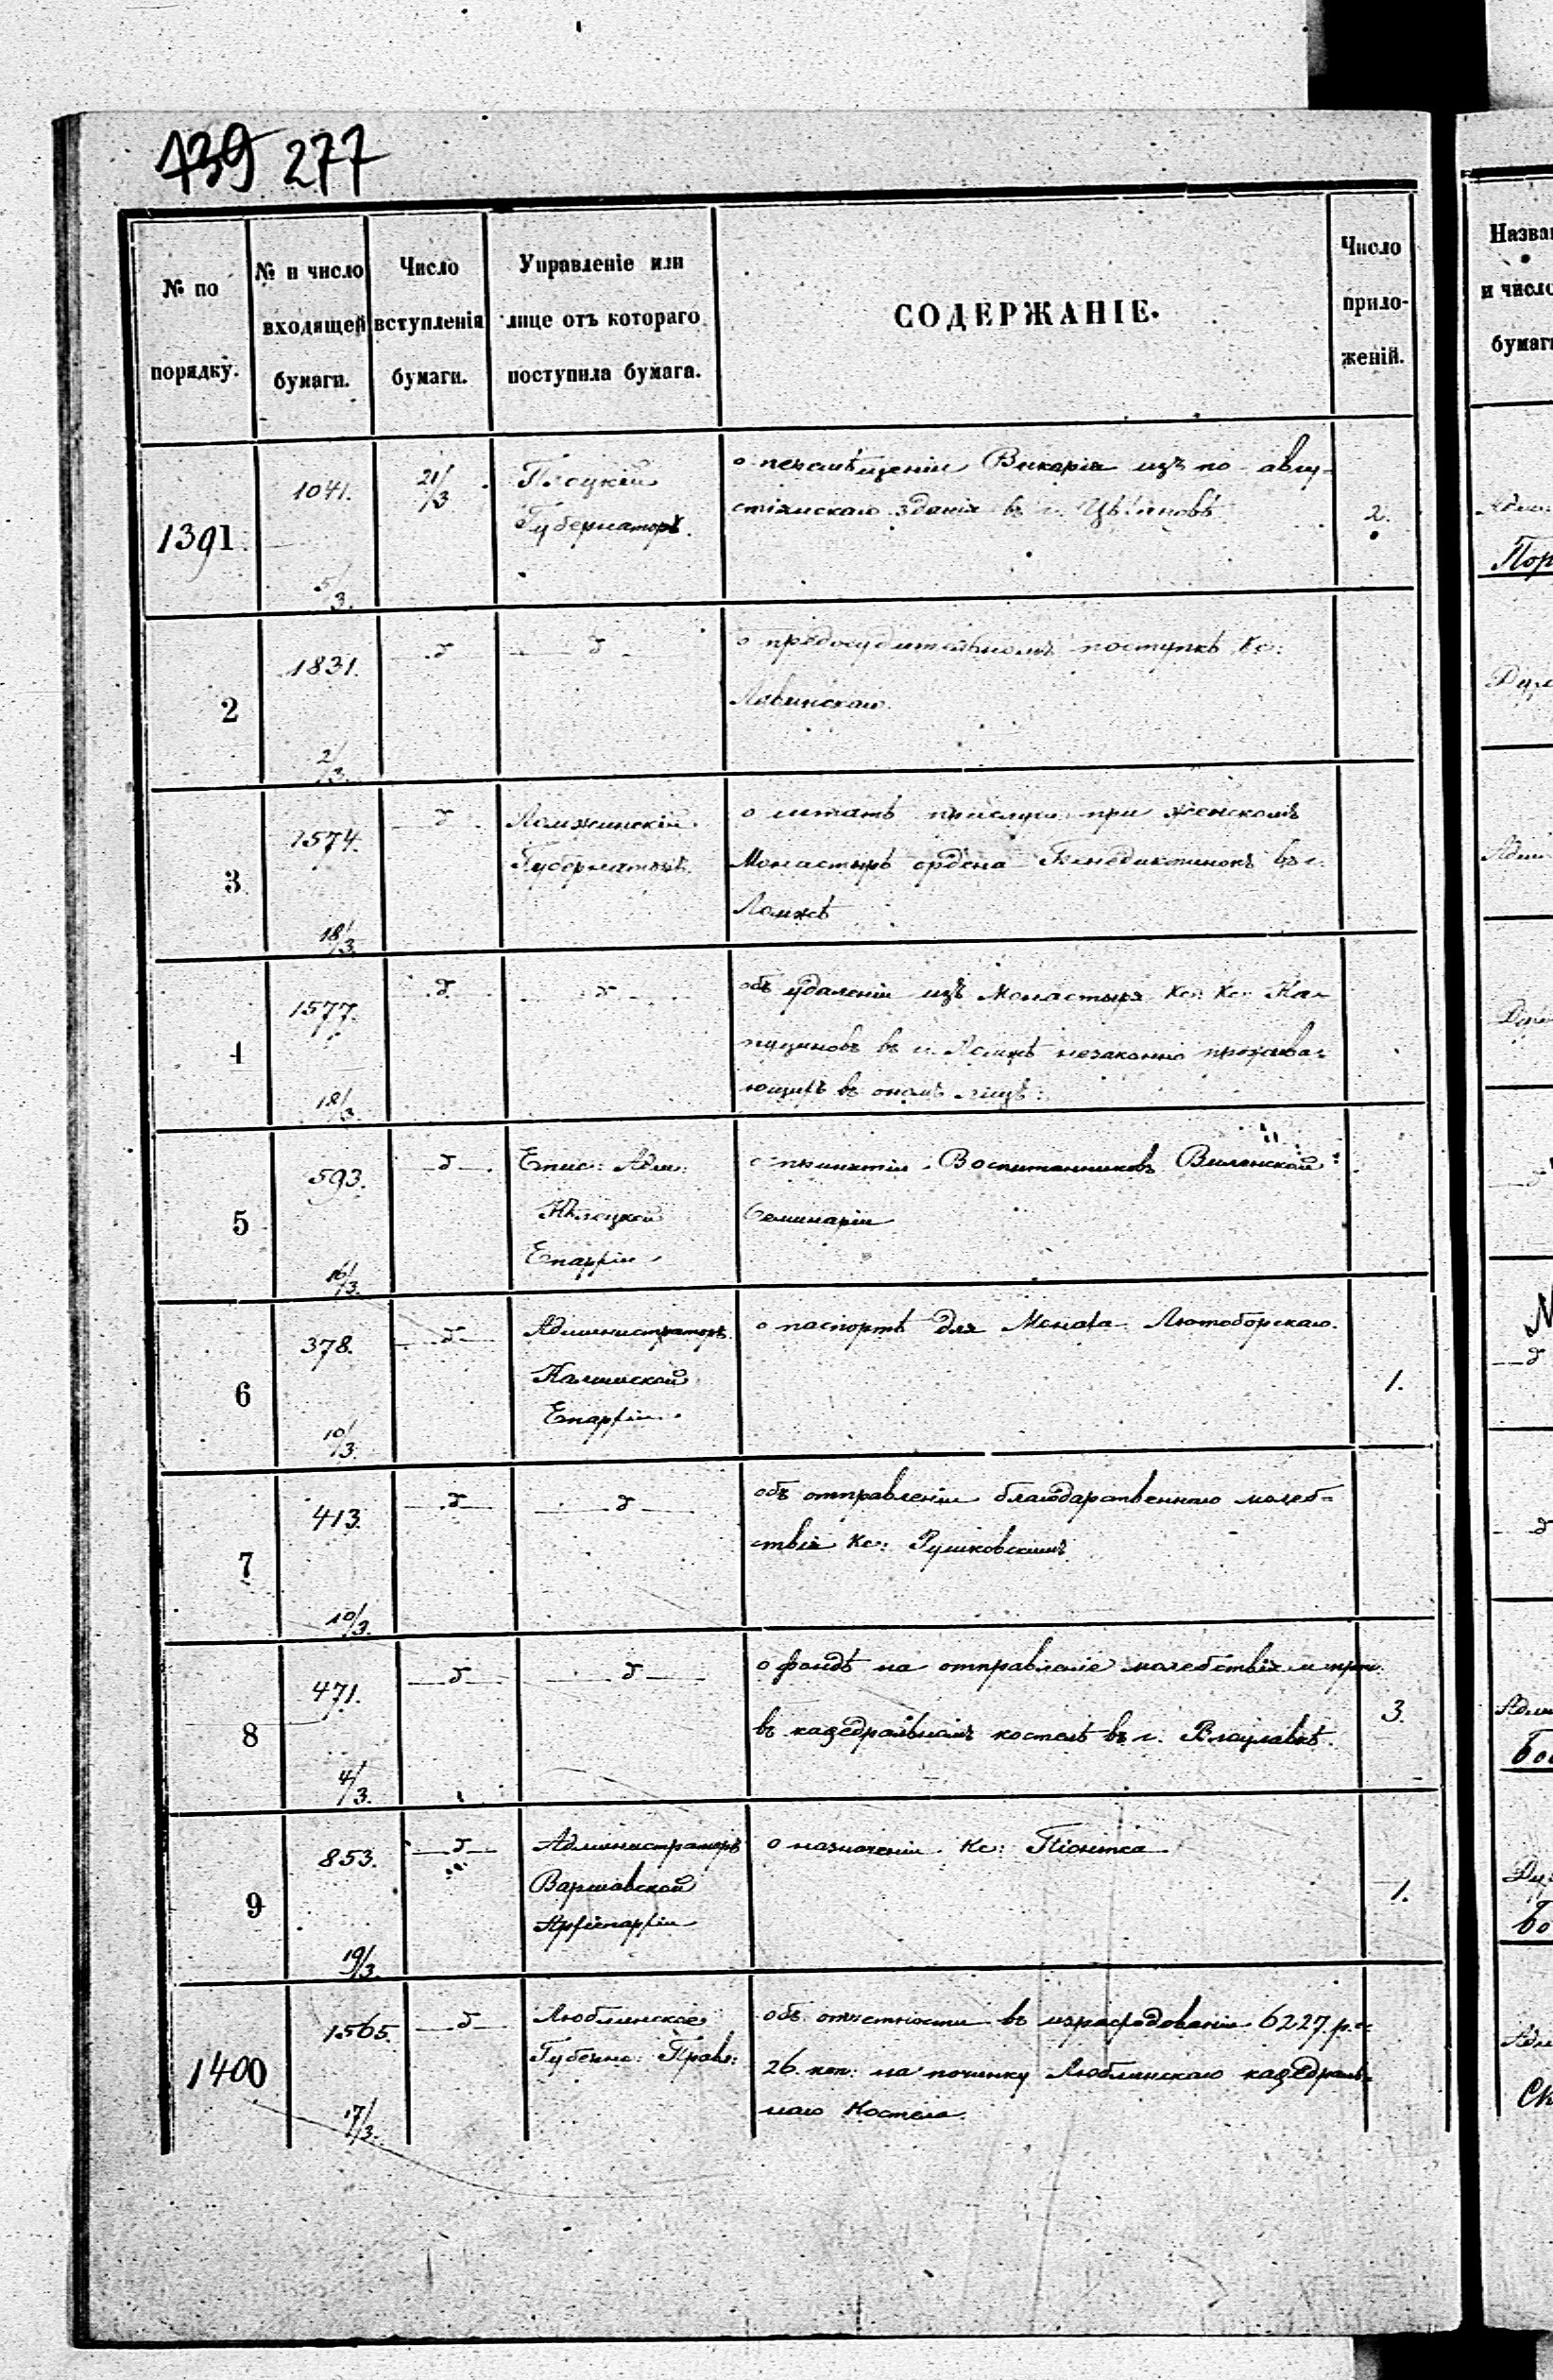 139 277
№ по порядку.
№ и число входящей бумаги.
Число вступленія бумаги.
Управленіе или лице отъ котораго поступила бумага.
СОДЕРЖАНІЕ.
Число прило-женій.
1391. 1041. 5/3. 21/3. Плоцкій Губернаторъ. о перемѣщеніи Викарія изъ по-авгу-
стіянскаго зданія въ г. Цѣхановѣ 2.
2 1831. 2/3. —д— —д— о предосудительномъ поступкѣ Кс:
Лавинскаго.
3 1574. 18/3. —д— Ломжинскій Губернаторъ. о штатѣ прислуги при женскомъ
Монастырѣ ордена Бенедиктинокъ въ г.
Ломжѣ
4 1577. 18/3. —д— —д— объ удаленіи изъ Монастыря Кс: Кс: Ка-
пуциновъ въ г. Ломжѣ незаконно прожива-
ющихъ въ ономъ лицъ:
5 593. 16/3. —д— Епис: Адм: Кѣлецкой Епархіи о принятіи Воспитанниковъ Виленской
Семинаріи
6 378. 10/3. —д— Администраторъ Калишской Епархіи. о паспортѣ для Монаха Лютоборскаго. 1.
7 413. 10/3. —д— —д— объ отправленіи благодарственнаго молеб=
ствія Кс: Рушковскимъ.
8 471. 4/3. —д— —д— о фондѣ на отправленіе молебствія и проч.
въ кафедральномъ костелѣ въ г. Влоцлавкѣ. 3.
9 853. 19/3. —д— Администраторъ Варшавской Архіепархіи о назначеніи Кс: Піонтка 1.
1400 1565. 17/3. —д— Люблинское Губернс: Правл: объ отчетности въ израсходованіи 6227. р. с.
26. коп: на починку Люблинскаго кафедраль-
наго Костела.
Назва
и число
бумаг
Адм:
Пор
Дух
Адм
Дух
—д
—д
—д
Адм
Бо
Дух
Бо
Адм
Ск